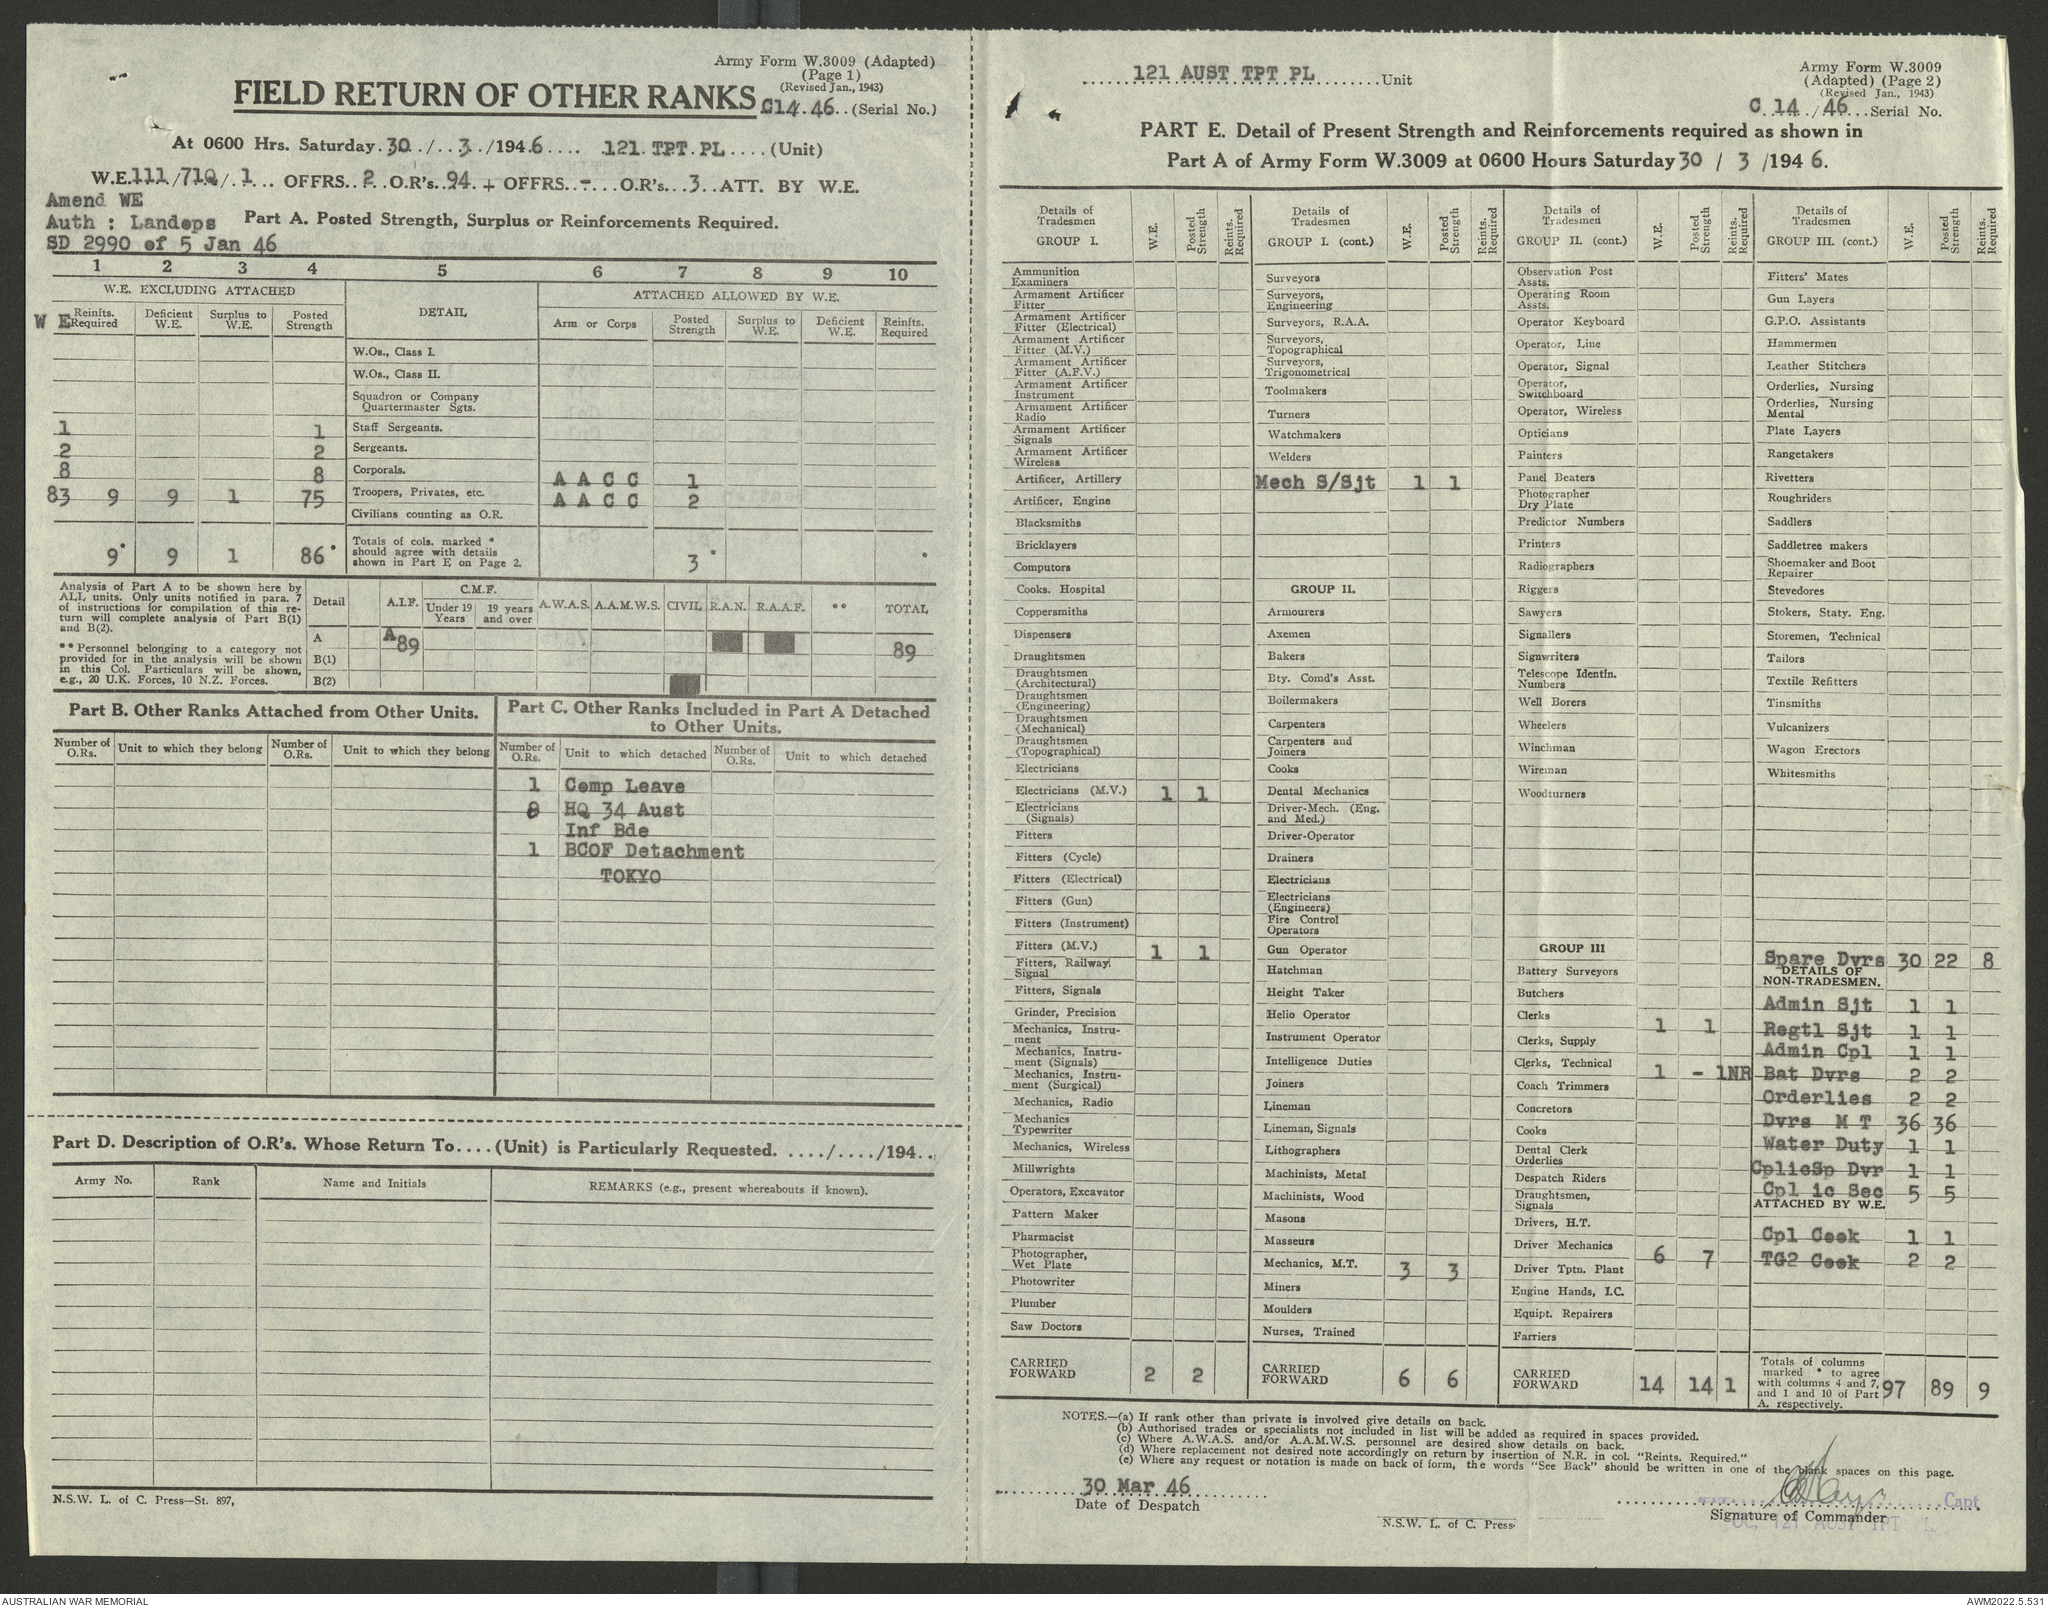 Army Form W.3009 (Adapted)
(Page 1)
(Revised Jan., 1943)
FIELD RETURN OF OTHER RANKS C14.46.. (Serial No.)
At 0600 Hrs. Saturday. 30 ./.. 3. /194.6.... .121. TPT. PL.... (Unit)
W.E.111/71Q/.1... OFFRS..2..O.R's..94.+ OFFRS..-...O.R's...3..ATT. BY W.E.
Amend WE
Auth : Landops
SD 2990 of 5 Jan 46
Part A. Posted Strength, Surplus or Reinforcements Required.
1 2 3 4 5 6 7 8 9 10
W.E. EXCLUDING ATTACHED DETAIL ATTACHED ALLOWED BY W.E.
W E Reinfts. Required Deficient W.E. Surplus to W.E. Posted Strength Arm or Corps Posted Strength Surplus to W.E. Deficient W.E. Reinfts. Required
W.Os., Class I.
W.Os., Class II.
Squadron or Company
Quartermaster Sgts.
1 1 Staff Sergeants.
2 2 Sergeants.
8 8 Corporals. A A C C 1
83 9 9 1 75 Troopers, Privates, etc. A A C C 2
Civilians counting as O.R.
9* 9 1 86* Totals of cols. marked * should agree with details shown in Part E on Page 2. 3* *
Analysis of Part A to be shown here by
ALL units. Only units notified in para. 7
of instructions for compilation of this re-
turn will complete analysis of Part B(1)
and B(2).
**Personnel belonging to a category not
provided for in the analysis will be shown
in this Col. Particulars will be shown,
e.g., 20 U.K. Forces, 10 N.Z. Forces.
Detail A.I.F. C.M.F. Under 19 Years 19 years and over A.W.A.S. A.A.M.W.S. CIVIL R.A.N. R.A.A.F. ** TOTAL
A A89 89
B(1)
B(2)
Part B. Other Ranks Attached from Other Units.
Number of O.Rs. Unit to which they belong Number of O.Rs. Unit to which they belong
Part C. Other Ranks Included in Part A Detached
to Other Units.
Number of O.Rs. Unit to which detached Number of O.Rs. Unit to which detached
1 Comp Leave
8 HQ 34 Aust
Inf Bde
1 BCOF Detachment
TOKYO
Part D. Description of O.R's. Whose Return To....(Unit) is Particularly Requested. ..../..../194..
Army No. Rank Name and Initials REMARKS (e.g., present whereabouts if known).
N.S.W. L. of C. Press—St. 897,
......121 AUST TPT PL........Unit
Army Form W.3009
(Adapted) (Page 2)
(Revised Jan., 1943)
C..14../46...Serial No.
PART E. Detail of Present Strength and Reinforcements required as shown in
Part A of Army Form W.3009 at 0600 Hours Saturday 30 / 3 /194 6.
Details of Tradesmen GROUP I. W.E. Posted Strength Reints. Required
Ammunition Examiners
Armament Artificer Fitter
Armament Artificer Fitter (Electrical)
Armament Artificer Fitter (M.V.)
Armament Artificer Fitter (A.F.V.)
Armament Artificer Instrument
Armament Artificer Radio
Armament Artificer Signals
Armament Artificer Wireless
Artificer, Artillery
Artificer, Engine
Blacksmiths
Bricklayers
Computors
Cooks. Hospital
Coppersmiths
Dispensers
Draughtsmen
Draughtsmen (Architectural)
Draughtsmen (Engineering)
Draughtsmen (Mechanical)
Draughtsmen (Topographical)
Electricians
Electricians (M.V.) 1 1
Electricians (Signals)
Fitters
Fitters (Cycle)
Fitters (Electrical)
Fitters (Gun)
Fitters (Instrument)
Fitters (M.V.) 1 1
Fitters, Railway Signal
Fitters, Signals
Grinder, Precision
Mechanics, Instru-
ment
Mechanics, Instru-
ment (Signals)
Mechanics, Instru-
ment (Surgical)
Mechanics, Radio
Mechanics Typewriter
Mechanics, Wireless
Millwrights
Operators, Excavator
Pattern Maker
Pharmacist
Photographer, Wet Plate
Photowriter
Plumber
Saw Doctors
CARRIED FORWARD 2 2
Details of Tradesmen GROUP I. (cont.) W.E. Posted Strength Reints. Required
Surveyors
Surveyors, Engineering
Surveyors, R.A.A.
Surveyors, Topographical
Surveyors, Trigonometrical
Toolmakers
Turners
Watchmakers
Welders
Mech S/Sjt 1 1
GROUP II.
Armourers
Axemen
Bakers
Bty. Comd's Asst.
Boilermakers
Carpenters
Carpenters and Joiners
Cooks
Dental Mechanics
Driver-Mech. (Eng. and Med.)
Driver-Operator
Drainers
Electricians
Electricians (Engineers)
Fire Control Operators
Gun Operator
Hatchman
Height Taker
Helio Operator
Instrument Operator
Intelligence Duties
Joiners
Lineman
Lineman, Signals
Lithographers
Machinists, Metal
Machinists, Wood
Masons
Masseurs
Mechanics, M.T. 3 3
Miners
Moulders
Nurses, Trained
CARRIED FORWARD 6 6
Details of Tradesmen GROUP II. (cont.) W.E. Posted Strength Reints. Required
Observation Post Assts.
Operating Room Assts.
Operator Keyboard
Operator, Line
Operator, Signal
Operator, Switchboard
Operator, Wireless
Opticians
Painters
Panel Beaters
Photographer Dry Plate
Predictor Numbers
Printers
Radiographers
Riggers
Sawyers
Signallers
Signwriters
Telescope Identfn. Numbers
Well Borers
Wheelers
Winchman
Wireman
Woodturners
GROUP III
Battery Surveyors
Butchers
Clerks 1 1
Clerks, Supply
Clerks, Technical 1 - 1NR
Coach Trimmers
Concretors
Cooks
Dental Clerk Orderlies
Despatch Riders
Draughtsmen, Signals
Drivers, H.T.
Driver Mechanics 6 7
Driver Tptn. Plant
Engine Hands, I.C.
Equipt. Repairers
Farriers
CARRIED FORWARD 14 14 1
Details of Tradesmen GROUP III. (cont.) W.E. Posted Strength Reints. Required
Fitters' Mates
Gun Layers
G.P.O. Assistants
Hammermen
Leather Stitchers
Orderlies, Nursing
Orderlies, Nursing Mental
Plate Layers
Rangetakers
Rivetters
Roughriders
Saddlers
Saddletree makers
Shoemaker and Boot Repairer
Stevedores
Stokers, Staty. Eng.
Storemen, Technical
Tailors
Textile Refitters
Tinsmiths
Vulcanizers
Wagon Erectors
Whitesmiths
Spare Dvrs 30 22 8
DETAILS OF
NON-TRADESMEN.
Admin Sjt 1 1
Regtl Sjt 1 1
Admin Cpl 1 1
Bat Dvrs 2 2
Orderlies 2 2
Dvrs M T 36 36
Water Duty 1 1
CplicSp Dvr 1 1
Cpl ic Sec 5 5
ATTACHED BY W.E.
Cpl Cook 1 1
TG2 Cook 2 2
Totals of columns
marked * to agree
with columns 4 and 7,
and 1 and 10 of Part
A. respectively. 97 89 9
NOTES.—(a) If rank other than private is involved give details on back.
(b) Authorised trades or specialists not included in list will be added as required in spaces provided.
(c) Where A.W.A.S. and/or A.A.M.W.S. personnel are desired show details on back.
(d) Where replacement not desired note accordingly on return by insertion of N.R. in col. "Reints. Required."
(e) Where any request or notation is made on back of form, the words "See Back" should be written in one of the blank spaces on this page.
30 Mar 46
Date of Despatch
N.S.W. L. of C. Press.
Capt
Signature of Commander
OC, 121 AUST TPT PL
AUSTRALIAN WAR MEMORIAL
AWM2022.5.531